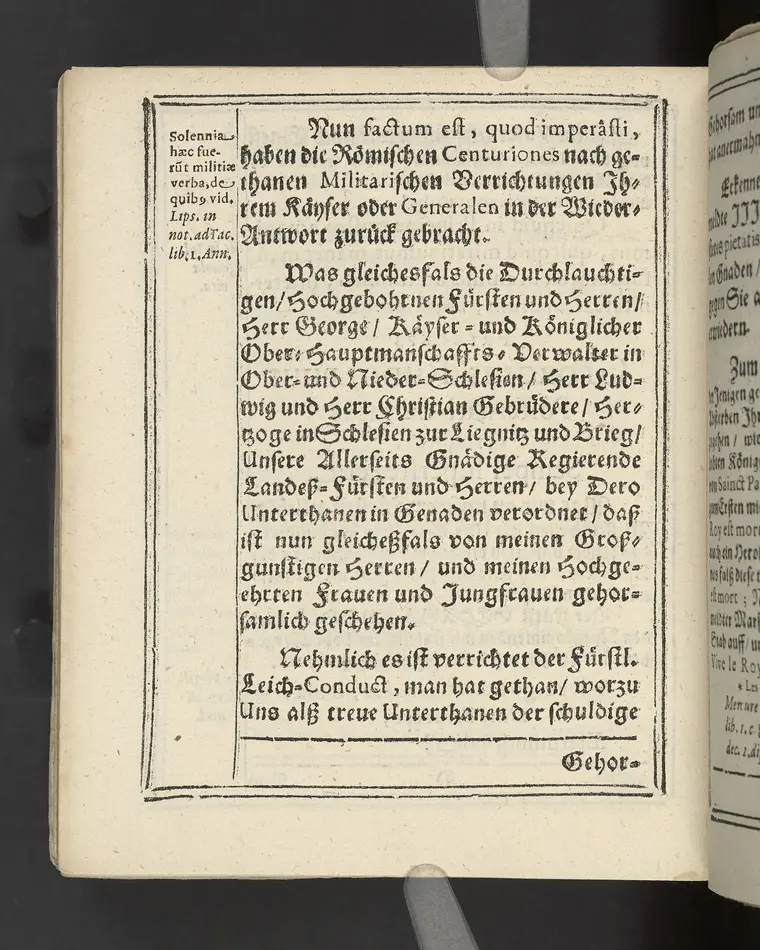 Solennia
hæc fue-
rūt militiæ
verba, de
quibꝰ vid.
Lips. in
not. ad Tac.
lib. 1. Ann.
Nun factum est, quod imperâsti,
haben die Römischen Centuriones nach ge-
thanen Militarischen Verrichtungen Ih-
rem Käyser oder Generalen in der Wieder-
Antwort zurück gebracht.
Was gleichesfals die Durchlauchti-
gen/ Hochgebohrnen Fürsten und Herren/
Herr George/ Käyser- und Königlicher
Ober-Hauptmanschaffts-Verwalter in
Ober- und Nieder-Schlesien/ Herr Lud-
wig und Herr Christian Gebrüdere/ Her-
tzoge in Schlesien zur Liegnitz und Brieg/
Unsere Allerseits Gnädige Regierende
Landeß-Fürsten und Herren/ bey Dero
Unterthanen in Genaden verordnet/ daß
ist nun gleicheßfals von meinen Groß-
gunstigen Herren/ und meinen Hochge-
ehrten Frauen und Jungfrauen gehor-
samlich geschehen.
Nehmlich es ist verrichtet der Fürstl.
Leich-Conduct, man hat gethan/ worzu
Uns alß treue Unterthanen der schuldige
Gehor-
Zum
Vive le Roy